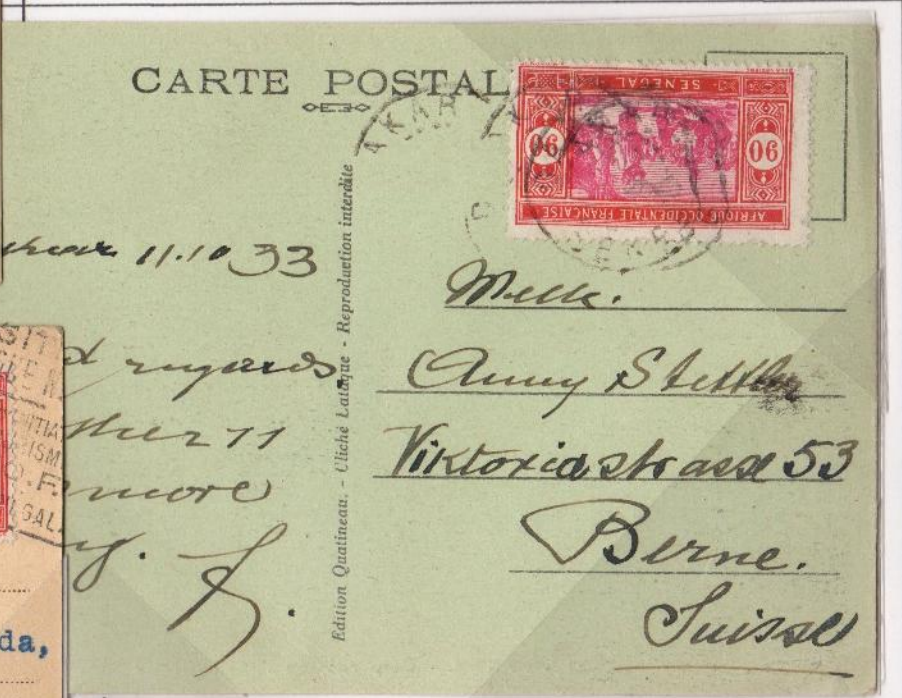 CARTE POSTAL
SENEGAL
90 90
AFRIQUE OCCIDENTALE FRANÇAISE
AKAR
11.10 33
regards,
11
more
y.
S.
Edition Quatineau. - Cliché Lataque - Reproduction interdite
Melle.
Anny Stettler
Viktoriastrasse 53
Berne.
Suisse
SIT
GAL.
da,